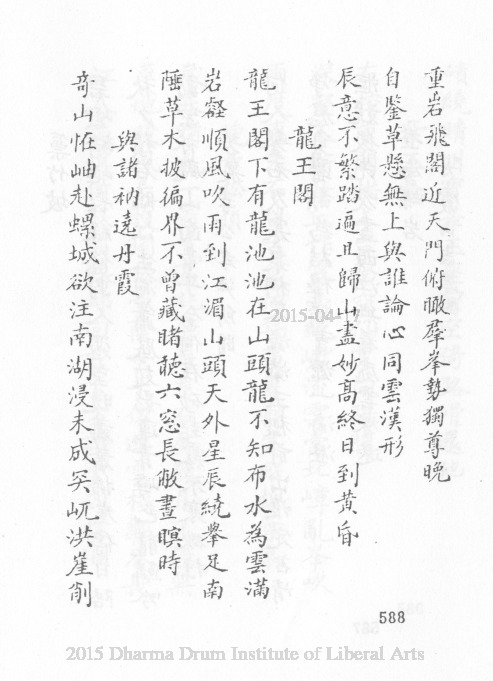 重岩飛閣近天門俯瞰羣峯勢獨尊晚
自鑒草懸無上與誰論心同雲漢形
辰意不繁踏遍且歸山盡妙高終日到黃昏
龍王閣
龍王閣下有龍池池在山頭龍不知布水為雲滿
岩壑順風吹雨到江湄山頭天外星辰繞舉足南
陲草木披徧界不曾藏睹聽六窓長敞晝暝時
與諸衲遶丹霞
奇山恠岫赴螺城欲注南湖浸未成哭屼洪崖削
2015-04-17
588
2015 Dharma Drum Institute of Liberal Arts